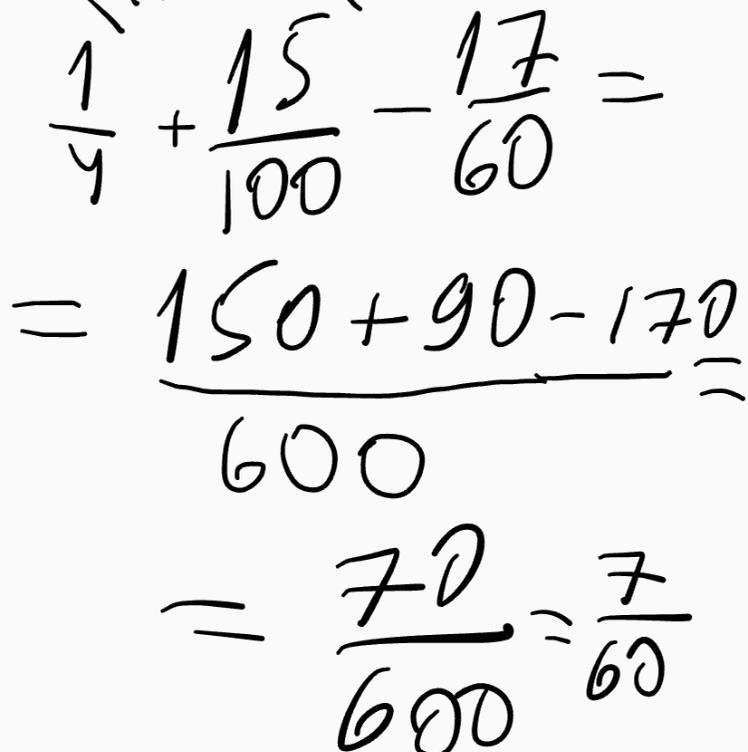 1/4 + 15/100 - 17/60 =
= (150 + 90 - 170)/600 =
= 70/600 = 7/60